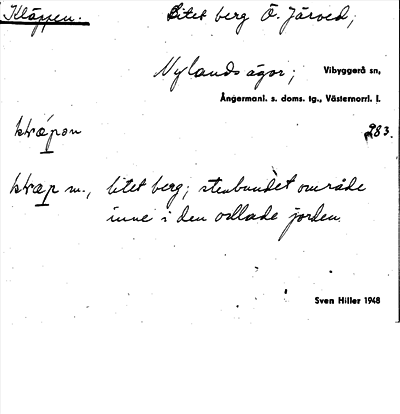 Kläppen. Litet berg Ö. Järved;
Nylands ägor; Vibyggerå sn,
Ångermanl. s. doms. tg., Västernorrl. l.
283.
m., litet berg; stenbundet område
inne i den odlade jorden.
Sven Hiller 1948